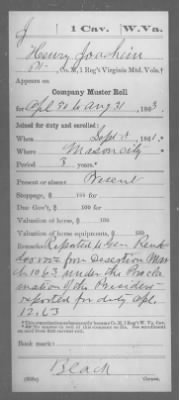 J 1 Cav. W.Va.
Henry Joachim
Pt., Co. M, 1 Reg't Virginia Mtd. Vols.†
Appears on
Company Muster Roll
for Apl 30 to Aug 31, 1863.
Joined for duty and enrolled:
When Sept , 1861.
Where Mason City
Period 3 years.*
Present or absent Present
Stoppage, $ 100 for
Due Gov't, $ 100 for
Valuation of horse, $ 100
Valuation of horse equipments, $ 100
Remarks: Reported to Gen
from Desertion Mar
ch 1863 under the Procla
mation of the President
reported for duty Apl.
12. 63
Book mark:
Black
(858c) Copyist.